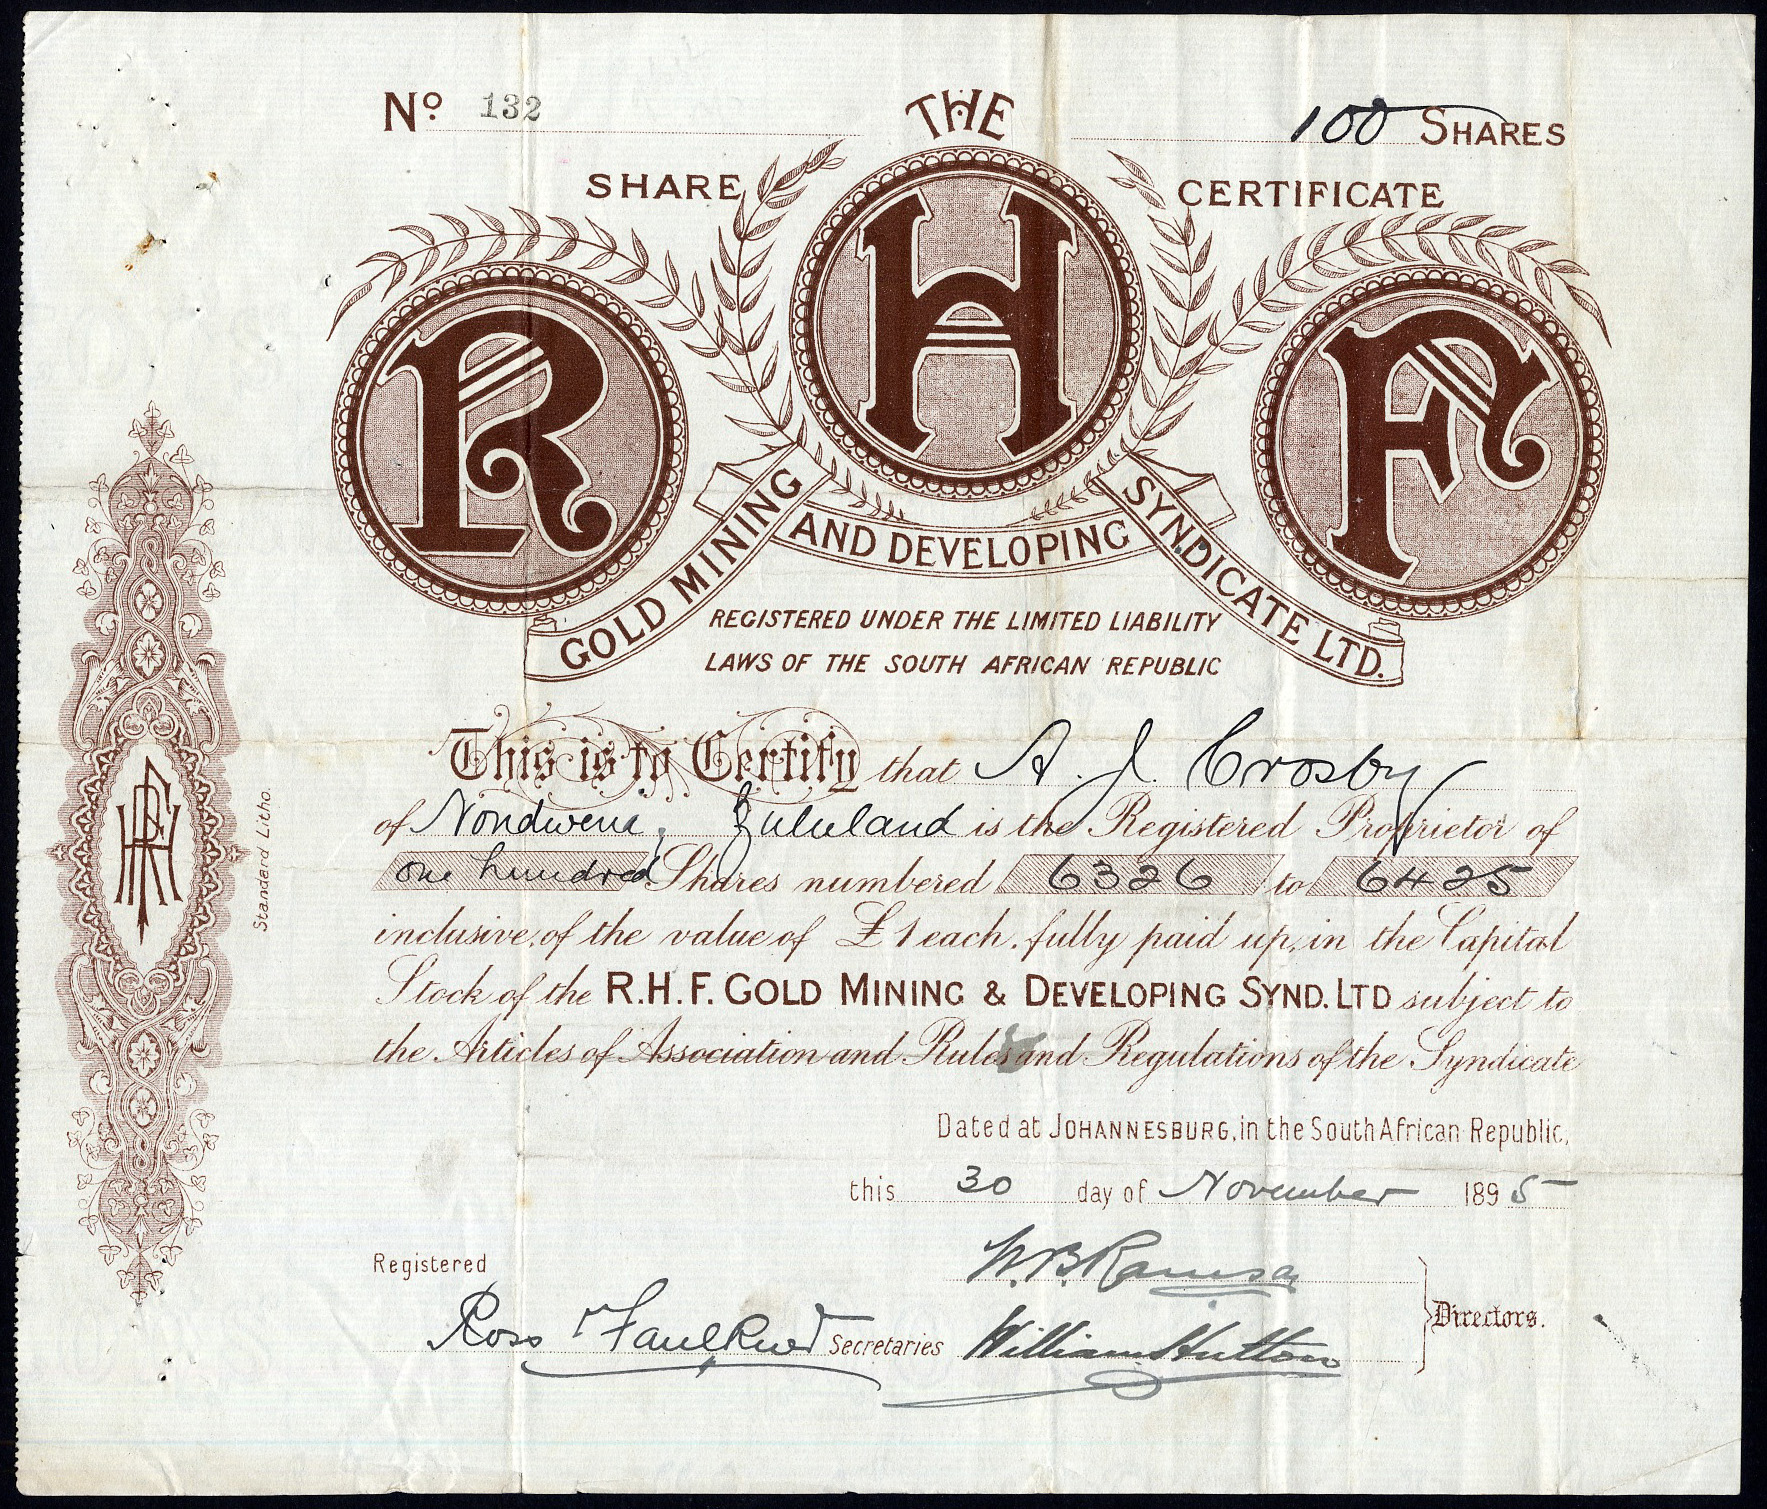 No 132 THE 100 SHARES
SHARE CERTIFICATE
R H F
GOLD MINING AND DEVELOPING SYNDICATE LTD.
REGISTERED UNDER THE LIMITED LIABILITY
LAWS OF THE SOUTH AFRICAN REPUBLIC
This is to Certify that A. J. Crosby
of Nondweni, Zululand is the Registered Proprietor of
one hundred Shares numbered 6326 to 6425
inclusive, of the value of £1 each, fully paid up, in the Capital
Stock of the R.H.F. GOLD MINING & DEVELOPING SYND. LTD subject to
the Articles of Association and Rules and Regulations of the Syndicate
Dated at JOHANNESBURG, in the South African Republic,
this 30 day of November 1895
Registered
W. B. Ramsa
Ross Faulkner Secretaries William Hutton
Directors.
Standard Litho.